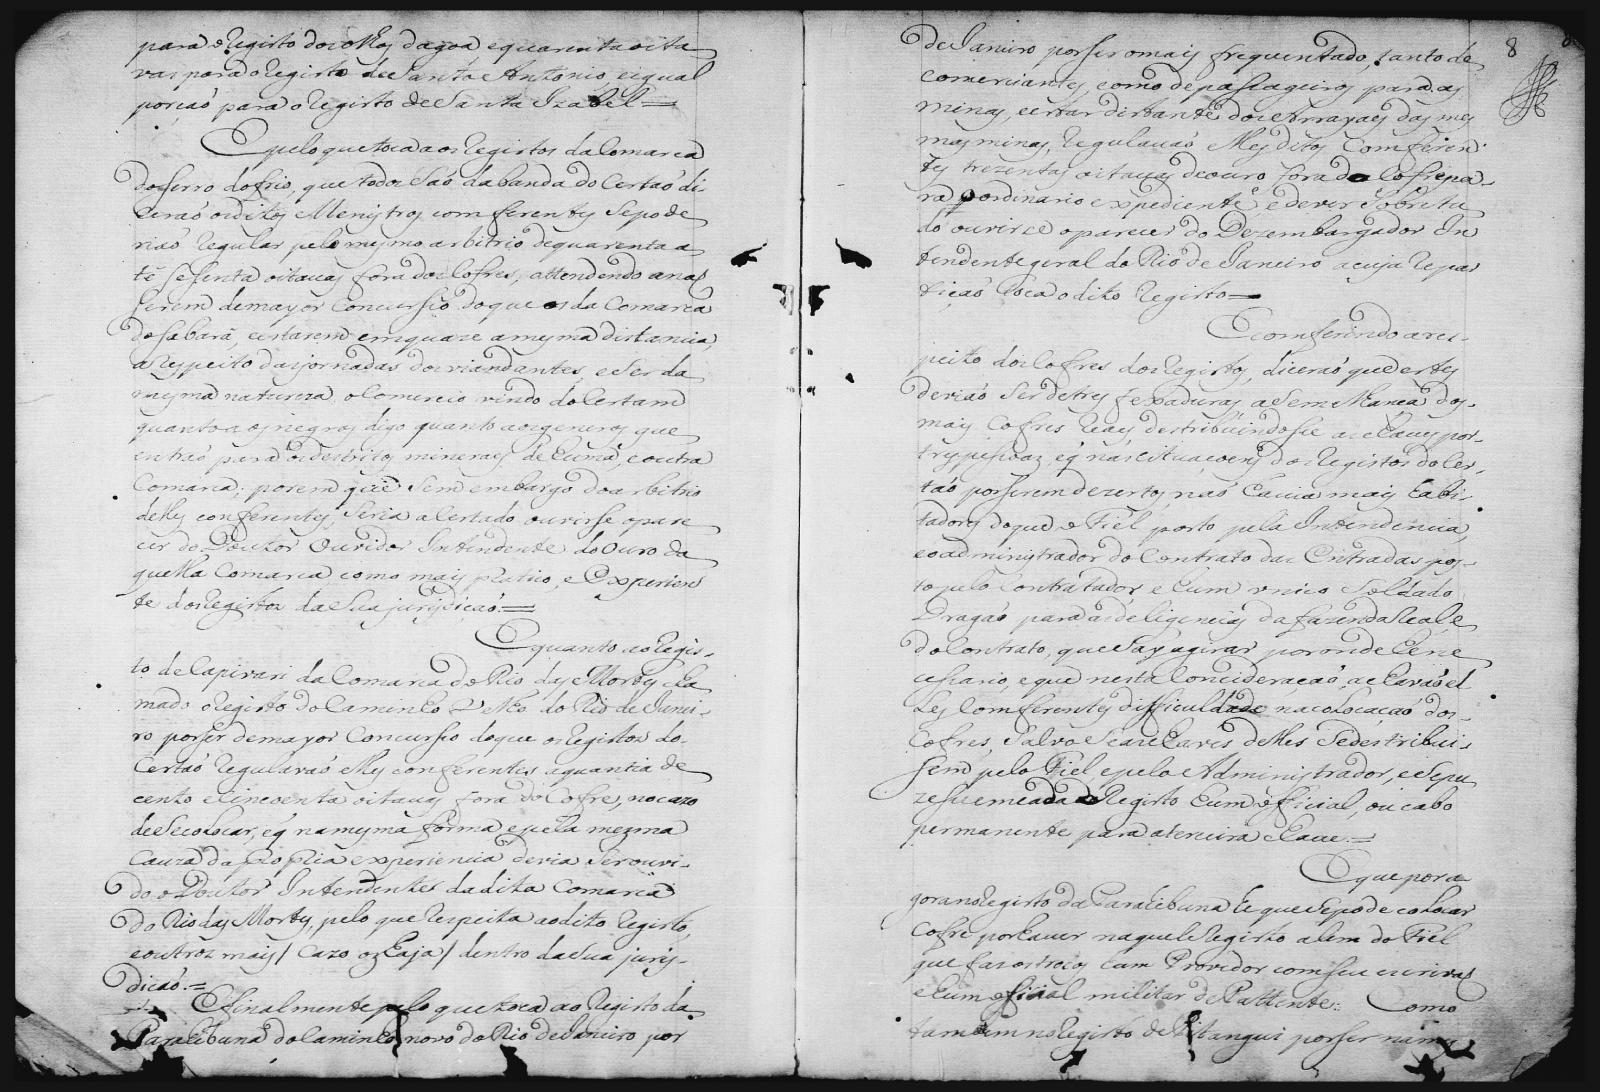 para o Registo dos olhos dagoa e quarenta oita
vas para o Registo de Santo Antonio, e igual
porçaõ para o Registo de Santa Izabel =
E pelo que toca aos Registos da Comarca
do Serro do frio, que todos saõ da banda do Certaõ di
ceraõ os ditos Menistros comferentes se pode
riaõ regular pelo mesmo arbitrio de quarenta a
té sesenta oitavas fora dos Cofres, attendendo a naõ
serem de mayor Concurso do que os da Comarca
do Sabará, e estarem em quaze a mesma distancia,
a respeito das jornadas dos viandantes, e ser da
mesma natureza o Comercio vindo do Certam
quanto aos negros digo quanto aos generos que
entraõ para os destritos mineraes de huma, e outra
Comarca; porem que sem embargo do arbitrio
delles conferentes, seria acertado ouvirse o pare
cer do Doutor Ouvidor Intendente do Ouro da
quella Comarca, como mais pratico, e Experien
te dos Registos da Sua jurisdiçaõ =
E quanto ao Regis-
to de Capivari da Comarca do Rio das Mortes cha
mado o Registo do Caminho velho do Rio de Janei-
ro por ser de mayor Concurso do que os Registos do
Certaõ regularaõ elles conferentes a quantia de
cento e Cincoenta oitavas fora do Cofre, no cazo
de se colocar, e q̃ na mesma forma e pela mezma
Cauza da propria experiencia devia ser ouvi-
do o Doutor Intendente da dita Comarca
do Rio das Mortes, pelo que respeita ao dito Registo,
e outros mais / Cazo os haja / dentro da Sua juris-
dicaõ =
E finalmente pelo que toca ao Registo da
Paraibuna do Caminho novo do Rio de Janeiro por
8
de Janeiro por ser o mais frequentado, tanto de
comerciantes, como de passageiros para as
minas, e estar distante dos Arrayaes das mes
mas minas, regulavaõ elles ditos Comferen
tes trezentas oitavas de ouro fora do Cofre pa-
ra o ordinario expediente, e dever sobre tu
do ouvirce o parecer do Dezembargador In
tendente geral do Rio de Janeiro a cuja repar
tiçaõ toca o dito Registo =
E comferindo a res-
peito dos Cofres dos Registos, diceraõ que estes
deviaõ ser de tres fexaduras a semelhança dos
mais Cofres Reaes destribuindose as chaves por
tres pessoaz, e q̃ nas cituaçoens dos Registos do Cer-
taõ por serem dezertos, naõ havia mais habi-
tadores do que o Fiel posto pela Intendencia,
e o administrador do Contrato das Entradas pos-
to pelo Contratador e hum unico Soldado
Dragaõ para as deligencias da fazenda Real e
do Contrato, que vay a girar por onde he ne
cessario, e que nesta Concideraçaõ, achavaõ el-
les Comferentes difficuldade na colocaçaõ dos
Cofres, Salvo se as chaves delles se destribuis
sem pelo Fiel, e pelo Administrador, e se pu
zesse em cada Registo hum official, ou cabo
permanente para a terceira chave =
E que por a
gora no Registo da Paraibuna he que se pode colocar
Cofre por haver naquele Registo alem do Fiel
que faz os trocos hum Provedor com seu escrivaõ
e hum official militar de Pattente: Como
tambem no Registo de Pitangui por ser na mes